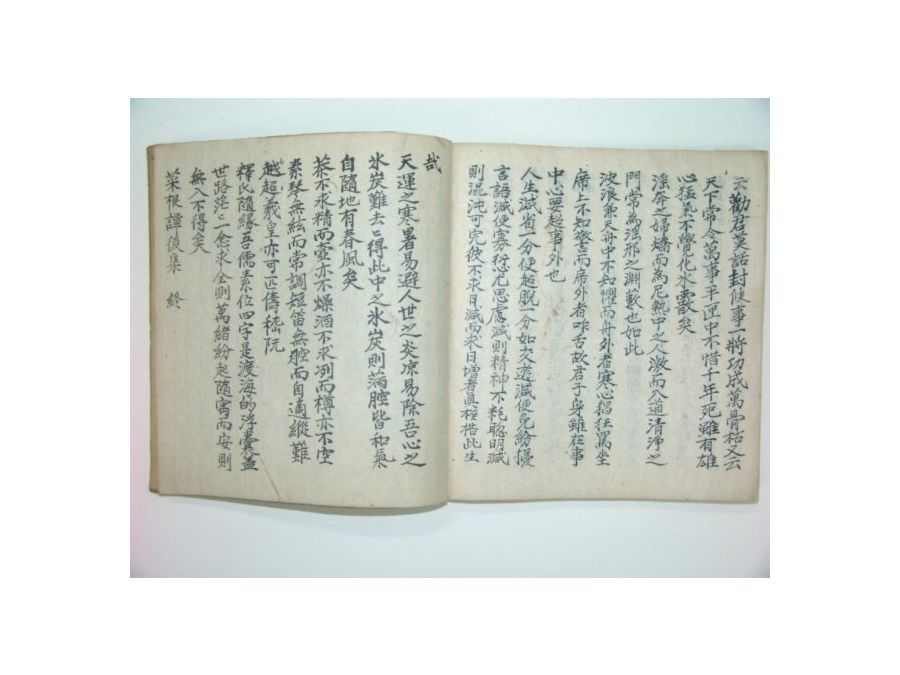 云勸君莫話封候事一將功成萬骨枯又云
天下常令萬事平匣中不惜千年死雖有雄
心猛氣不覺化氷霰矣
滛奔之婦矯而為尼熱中之人激而入道清淨之
門常為滛邪之淵藪也如此
波浪兼天舟中不知懼而舟外者寒心猖狂罵坐
席上不知警而席外者咋舌故君子身雖在事
中心要超事外也
人生減省一分便超脫一分如交遊減便免紛擾
言語減便寡愆尤思慮減則精神不耗聰明減
則混沌可完彼不求日減而求日增者眞桎梏此生
哉
天運之寒暑易避人世之炎凉易除吾心之
氷炭難去〻得此中之氷炭則滿腔皆和氣
自隨地有春風矣
茶不求精而壷亦不燥酒不求冽而樽亦不空
素琴無絃而常調短笛無腔而自適縱難
超越羲皇亦可匹儔嵇阮
釋氏隨緣吾儒素位四字是渡海的浮囊盖
世路茫〻一念求全則萬緖紛起隨寓而安則
無入不得矣
菜根譚後集 終